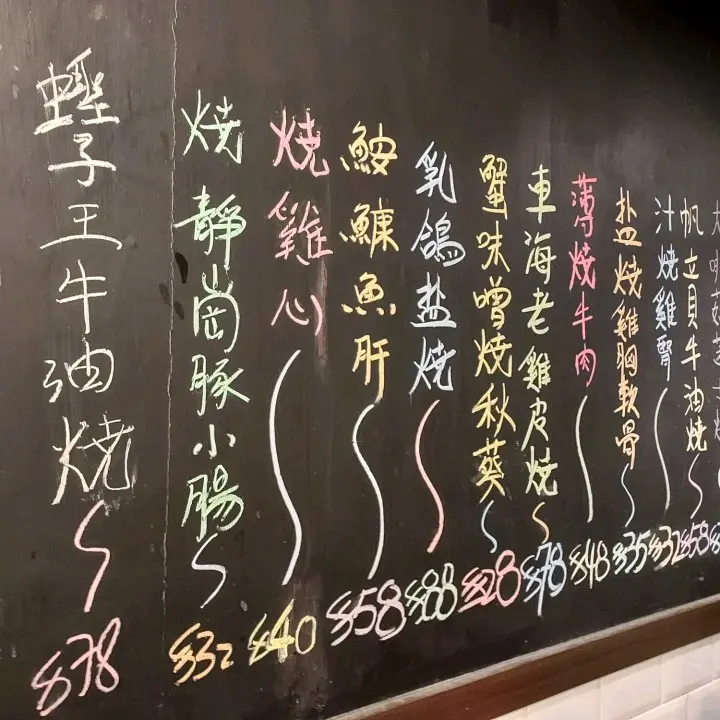 帆立貝牛油燒 $58
汁燒雞腎 $32
盐燒雞胸軟骨 $35
薄燒牛肉 $48
車海老雞皮燒 $78
蟹味噌燒秋葵 $28
乳鴿盐燒 $88
鮟鱇魚肝 $58
燒雞心 $40
燒靜崗豚小腸 $32
蟶子王牛油燒 $78